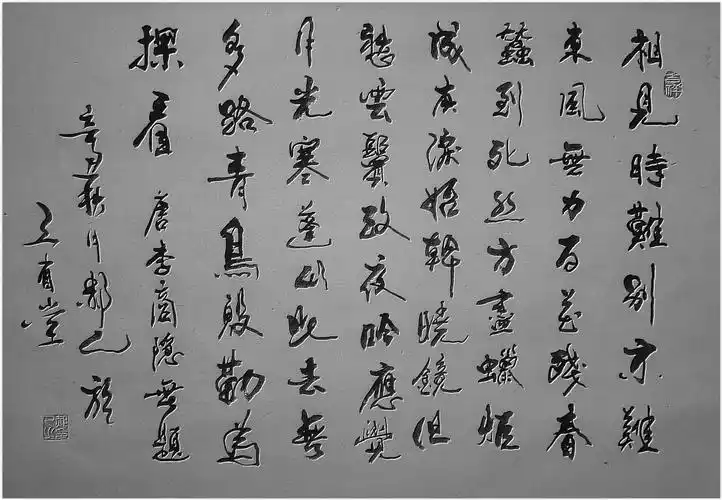 相見時難別亦難
東風無力百花殘春
蠶到死丝方盡蠟炬
成灰淚始幹曉鏡但
愁雲鬢改夜吟應覺
月光寒蓬山此去無
多路青鳥殷勤為
探看 唐李商隱無題
辛丑秋月